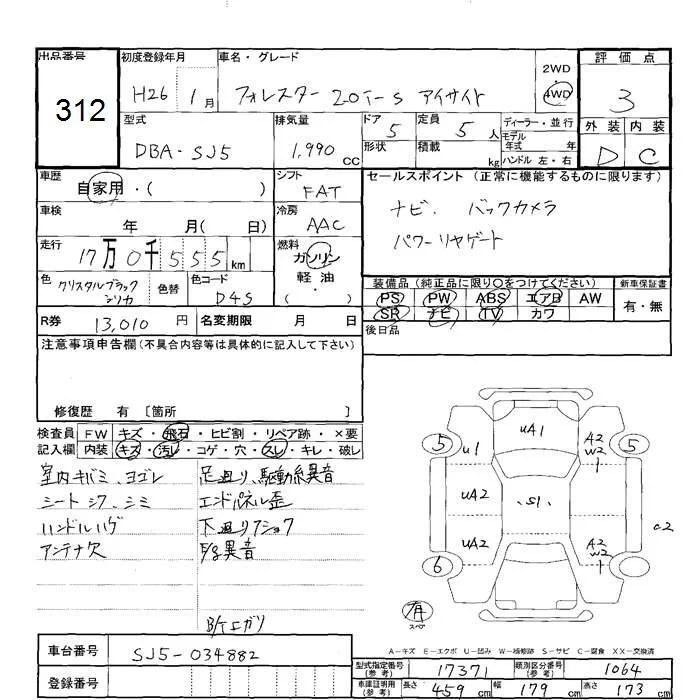 出品番号 初度登録年月 車名・グレード 評価点
312 H26 1月 フォレスター 2.0i-S アイサイト 2WD 4WD 3
型式 排気量 ドア 5 定員 5人 ディーラー・並行 外装 内装
DBA-SJ5 1,990cc 形状 積載 kg モデル年式 年 ハンドル 左・右 D C
車歴 自家用・( ) シフト FAT セールスポイント (正常に機能するものに限ります)
車検 年 月( 日) 冷房 AAC ナビ. バックカメラ
走行 17万0千555km 燃料 ガソリン 軽油・( ) パワーリヤゲート
色 クリスタルブラックシリカ 色替 色コード D4S
装備品 (純正品に限り○をつけてください) 新車保証書
PS PW ABS エアB AW 有・無
SR ナビ TV カワ
R券 13,010円 名変期限 月 日 後日品
注意事項申告欄(不具合内容等は具体的に記入して下さい)
修復歴 有 [箇所 ]
検査員記入欄 FW キズ・飛石・ヒビ割・リペア跡・×要
内装 キズ・汚レ・コゲ・穴・スレ・キレ・破レ
室内キバミ、ヨゴレ 足廻り、駆動系異音
シートシワ、シミ エンドパネル歪
ハンドルハゲ 下廻りフショク
アンテナ欠 異音
B/Kエガリ
UA1
5 U1 A2 W2 1 5
UA2 S1
UA2 A2 W2 1 6
有 スペア
A-キズ E-エクボ U-凹み W-補修跡 S-サビ C-腐食 XX-交換済
車台番号 SJ5-034882
登録番号
型式指定番号(参考) 17371 類別区分番号(参考) 1064
車庫証明用(参考) 長さ 459cm 幅 179cm 高さ 173cm